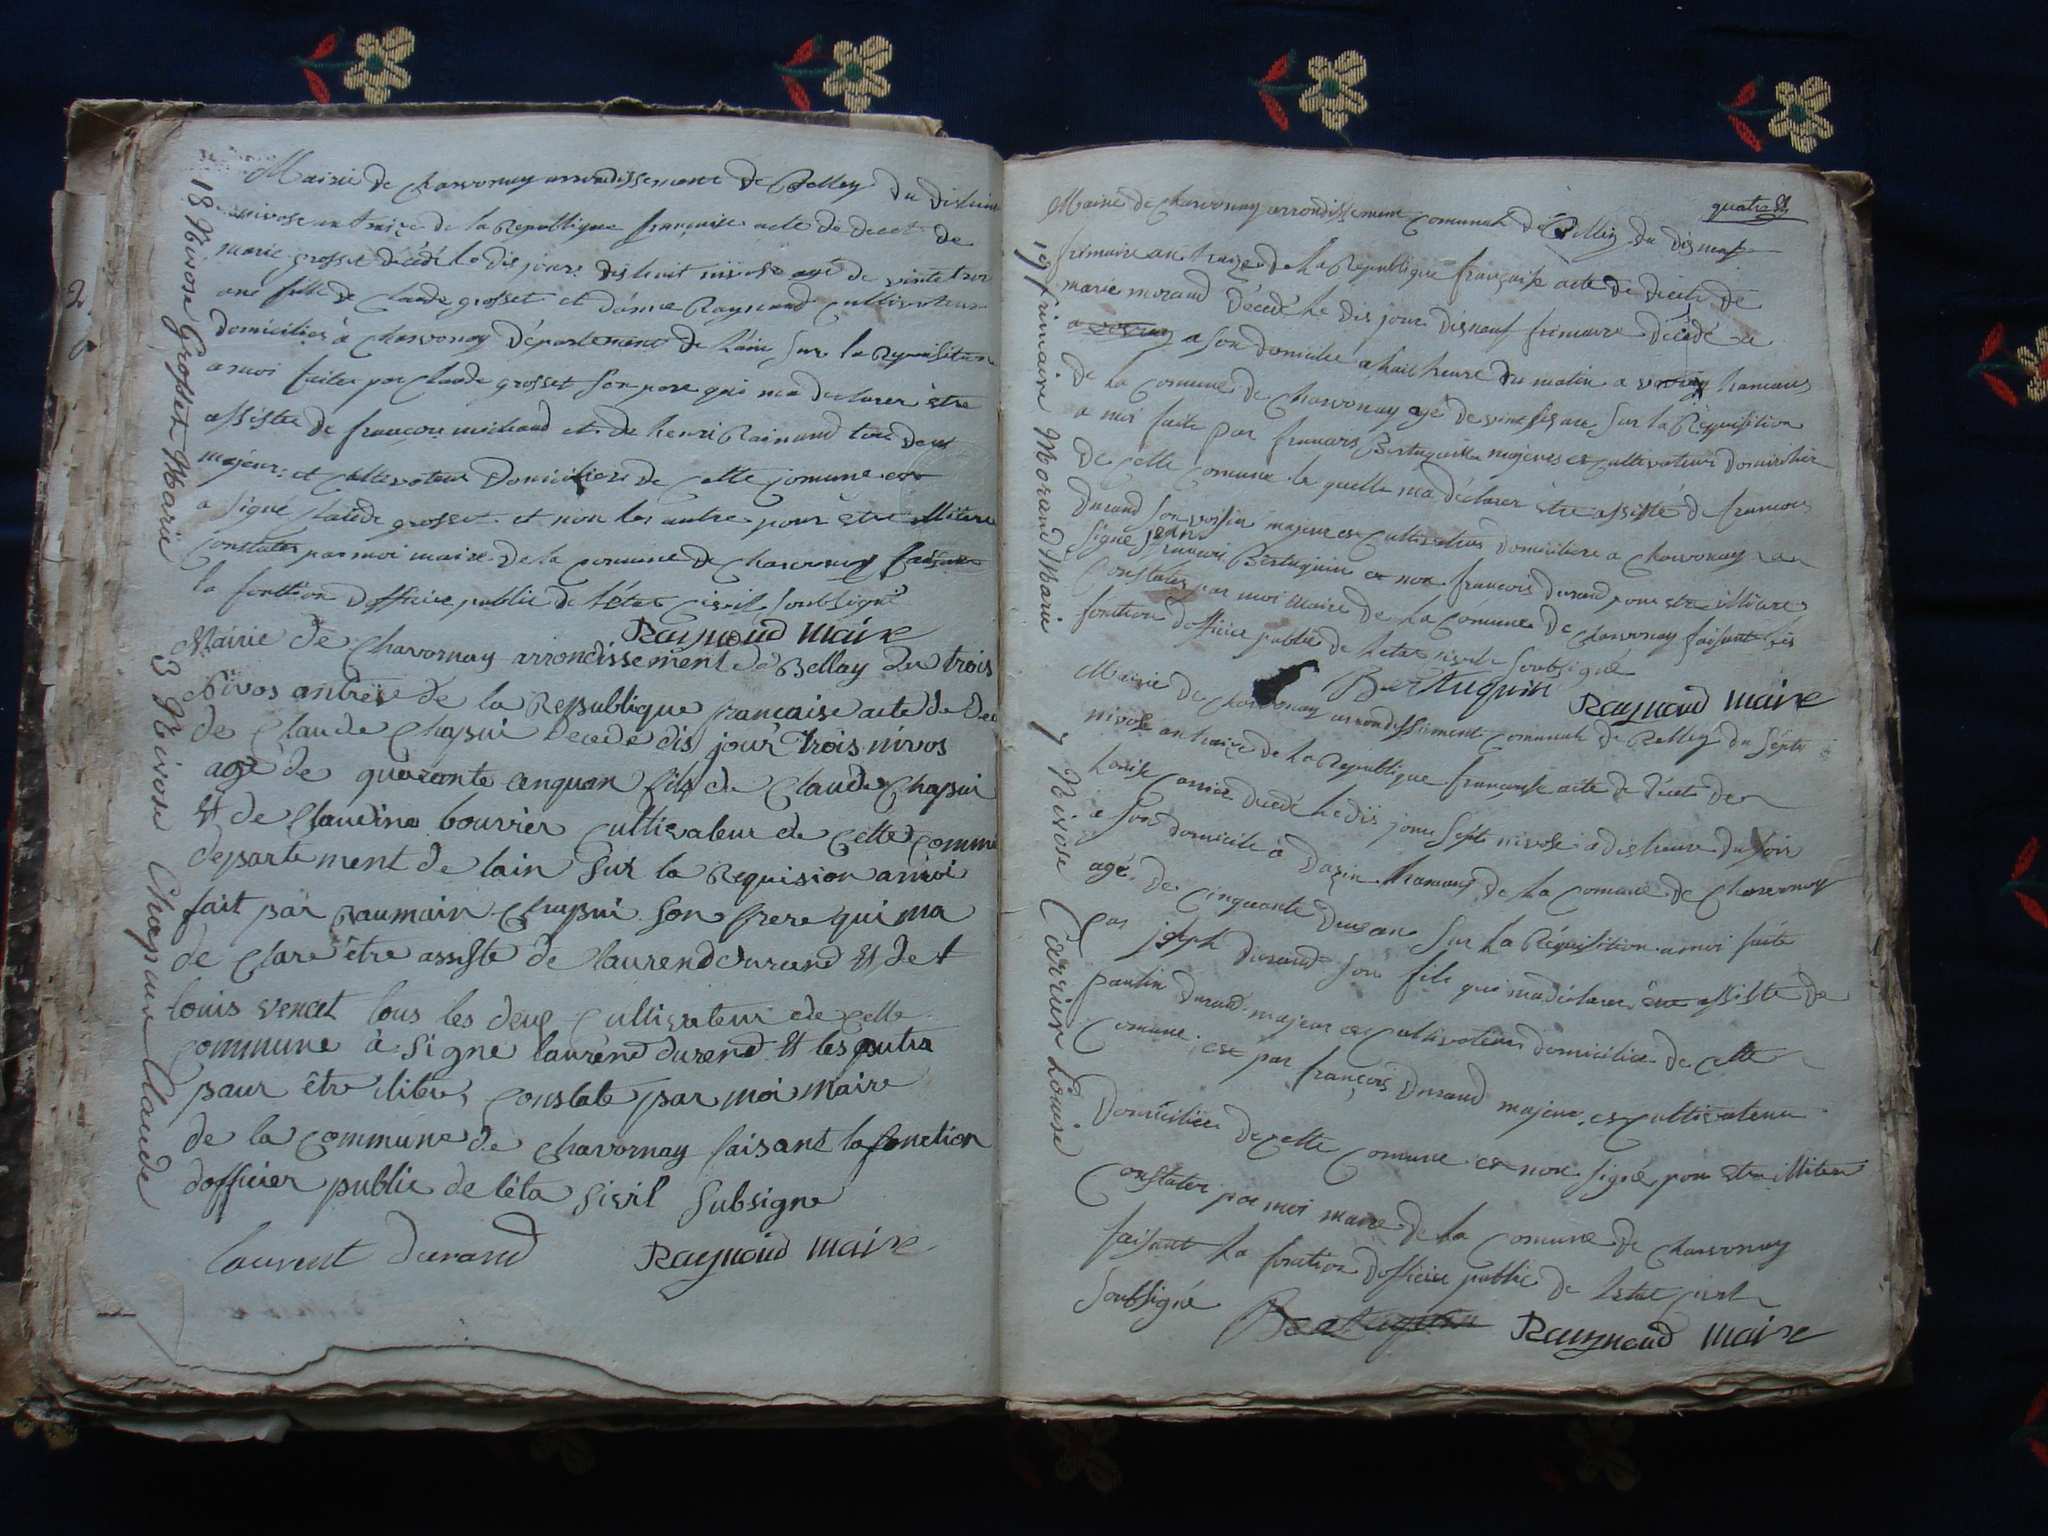 Mairie de Charvornay arrondissement de Belley du dishuit
nivose an treize de la Republique françaisse acte de decet de
marie grosset décédé le dis jour dishuit nivose agé de vinte troi
ane fille de Claude grosset et danne Raynaud cultivateur
domiciliés à Charvonay Département de Lain sur la Requisition
a moi faites par Claude grosset son pere qui ma declarer être
assistée de francois michaud et de henri Rainaud tou deux
majeur et cultivateur Domiciliers de cette comune
a signé Claude grosset et non les autre pour être illitere
Constater par moi maire de la comune de Charvonay faisant
la fonttion dofficier public de létat civil soubsigné
Raynaud Maire
18 Nivose Grosset Marie
Mairie de Chavornay arrondissement de Bellay du trois
Nivos antreize de la Republique francaise acte de Dec
de Claude Chapui Decede dis jour trois nivos
agé de quaronte cinquan fils de Claude Chapui
et de Claudine bouvier Cultivateur de Cette Commu
departement de lain Sur la Requision amoi
fait par Chapui Son frere qui ma
de Clare être assiste de laurend durend et de
louis vencet tous les deux Cultivateur de cette
commune à signe laurend durend et les autre
paur être iliter Constate par moi maire
de la Commune de Chavornay faisant la fonction
dofficier public de léta sivil Subsigne
laurent durand Raynaud Maire
3 Nivose Chapuis Claude
quatre
Mairie de Charvonay arrondissement comunal de Belley du disneuf
frimaire an treize de la Republique française acte de decets de
marie morand Décédé le dis jour disneuf frimaire décédé
a son domicile a huit heure du matin a hamaux
de la Comune de Charvonay agé de vint sis ans sur la Réquisition
a moi faite par francois Bertuquin majeur et cultivateur domicilier
de cette comune le quelle ma déclarer être assisté de francois
Durand son voisin majeur et cultivateur domiciliere a Charvonay
signé jean francois Bertuquin et non francois durand pour etre illitere
Constater par moi Maire de La Comune de Charvonay faisant les
fonction dofficier public de letat civil soubsigné
Bertuquin Raynaud Maire
19 frimaire Morand Marie
Mairie de Charvonay arrondissement comunal de Belley du septe
nivose an traize de la Republique françaisse acte de Décets de
Louise Carrier decédé le dis jour septe nivose a dis heure du soir
a son domicile à Dazin hamaux de la Comune de Charvornay
agé de cinquante deux ans sur la Réquisition a moi faite
par joseph durand son fils qui ma déclarer être assisté de
paulin durand majeur et cultivateur domicilié de cette
Comune et par françois Durand majeur et cultivateur
Domiciliée de cette comune et non signé pour etre illitere
Constater par moi maire de la Comune de Charvonay
faisant la fonction dofficier public de letat civil
soubsigné
Bertuquin Raynaud Maire
7 Nivose Carrier Louise